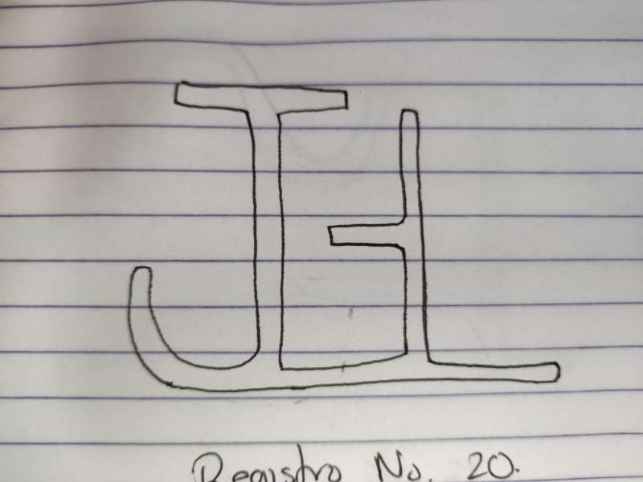 Registro No. 20.